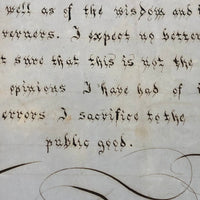 well as of the wisdom and i
verners. I expect no better
t sure that this is not the
opinions I have had of i
errors I sacrifice to the
public good.